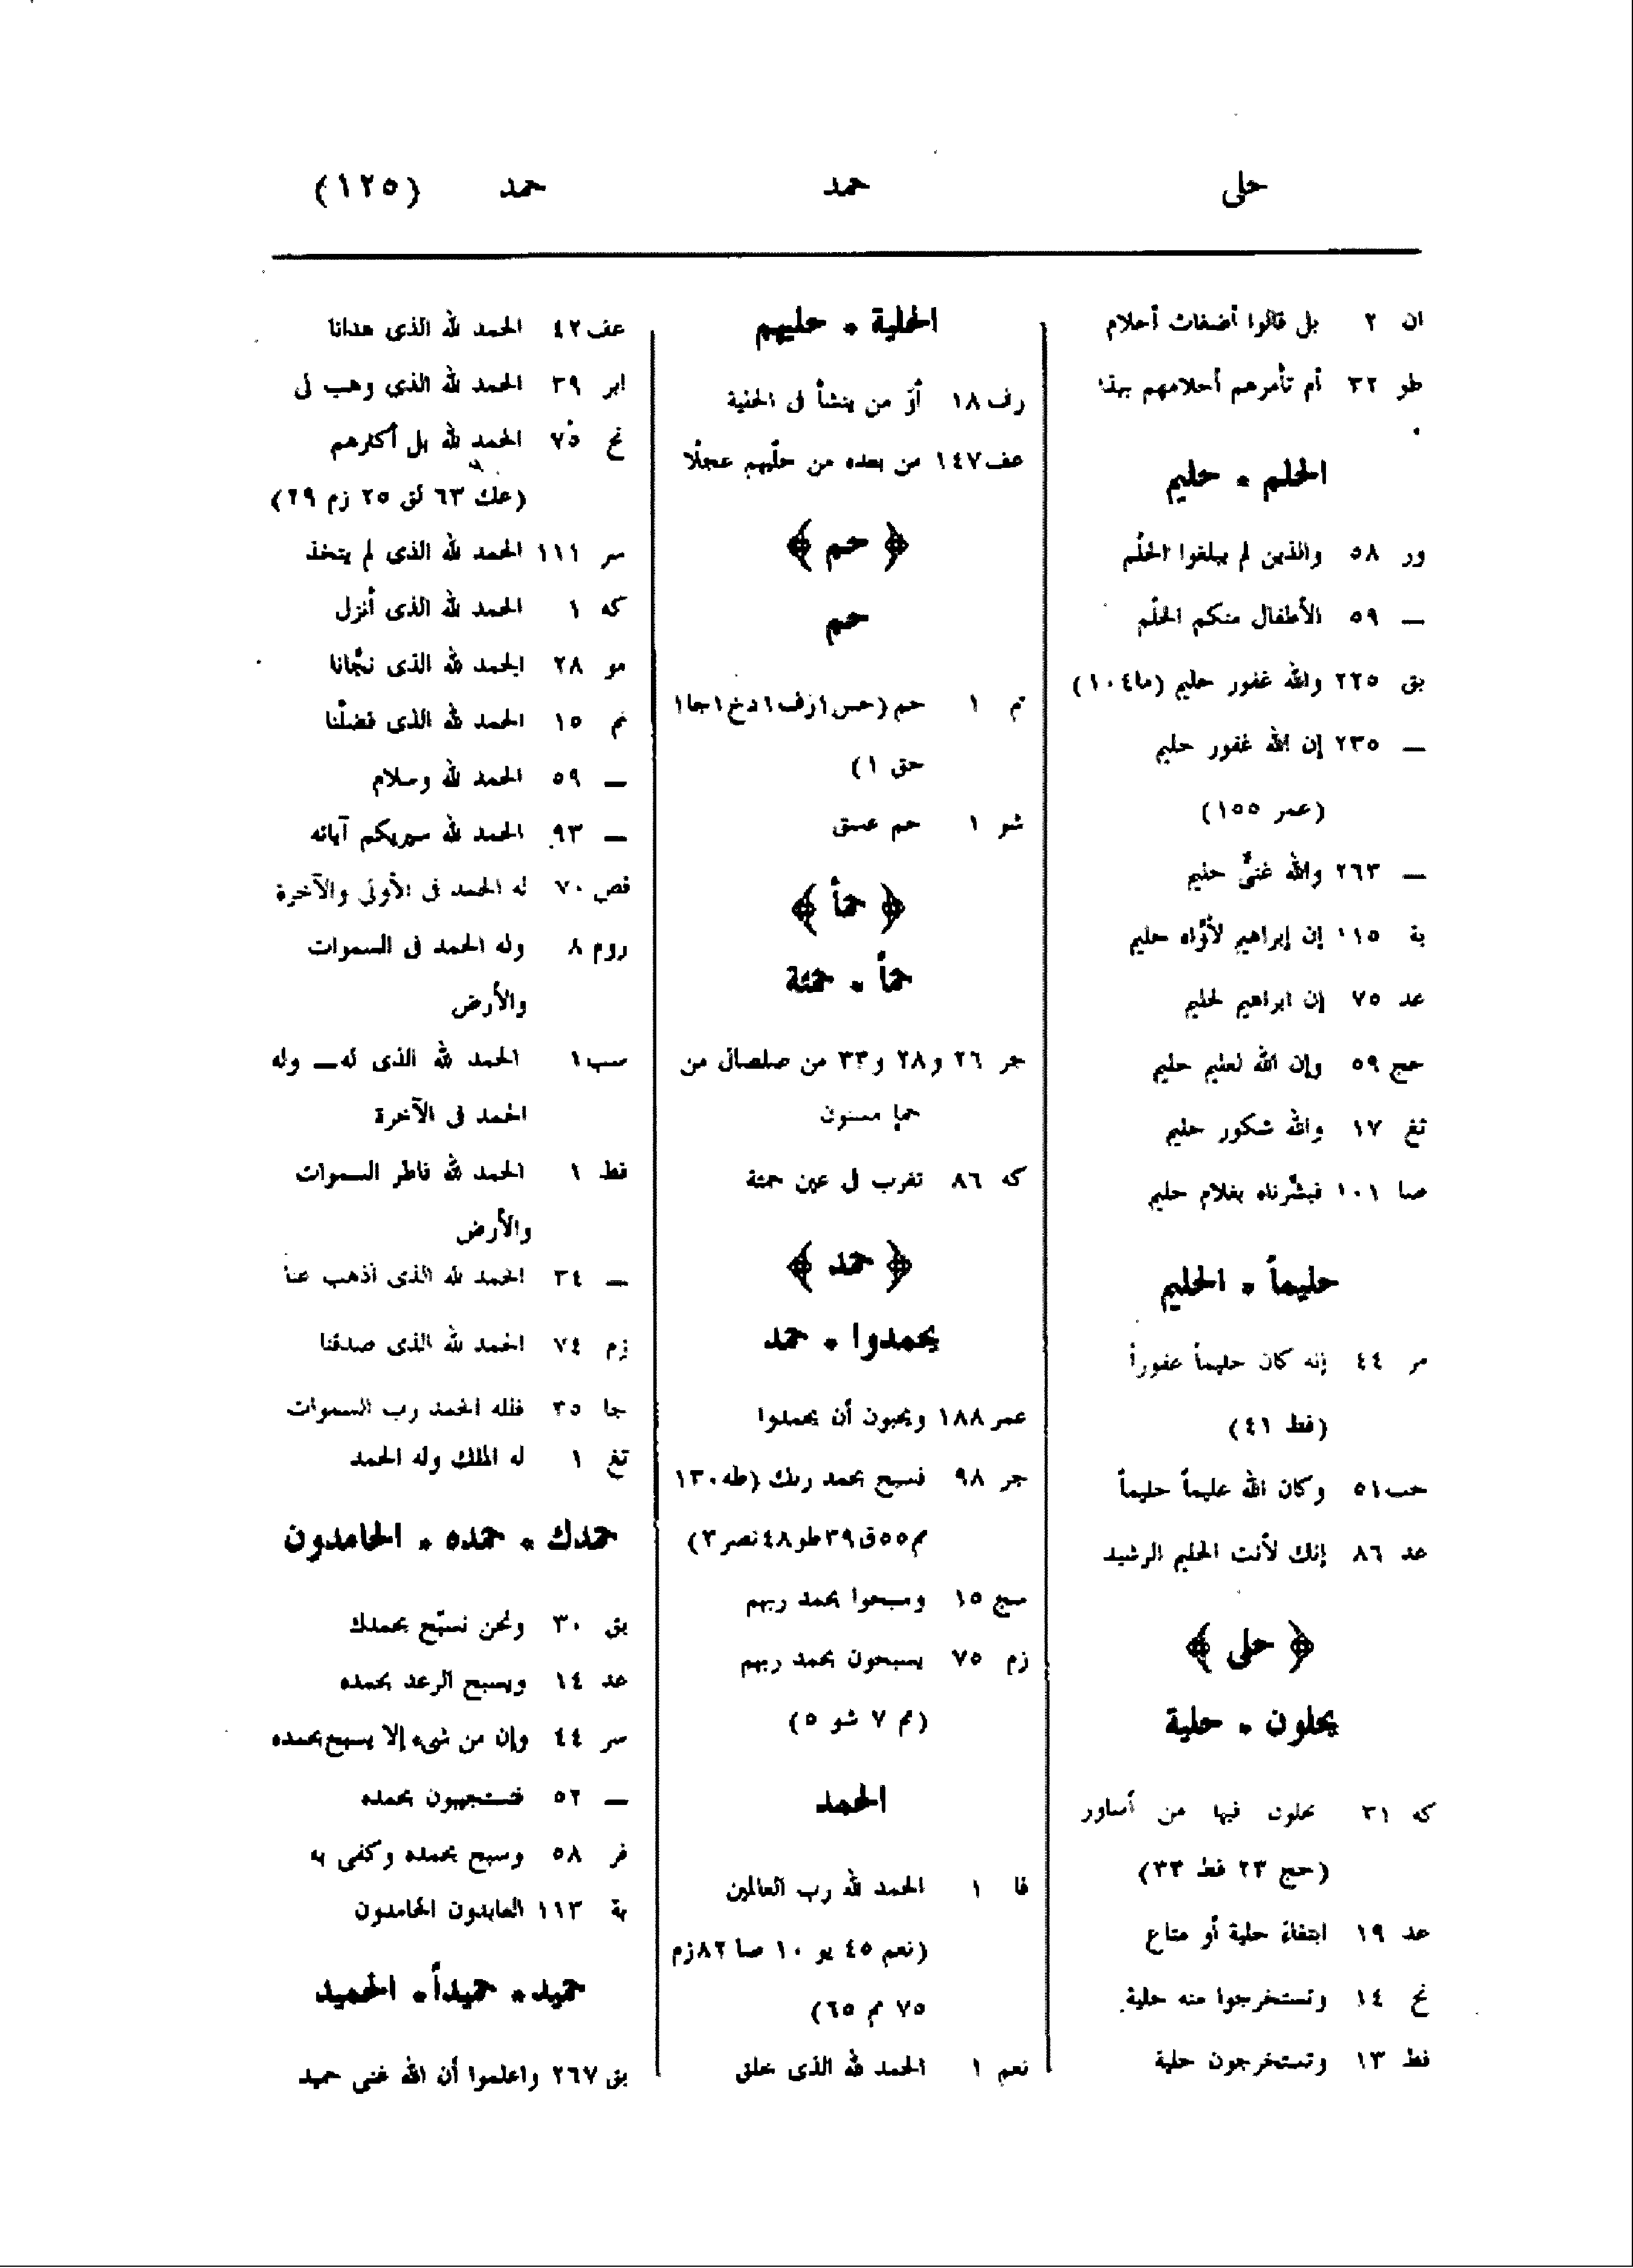 حلى
حمد
حمد (١٢٥)
ان ٢ بل قالوا أضغاث أحلام
طو ٣٢ أم تأمرهم أحلامهم بهذا
الحلم ٠ حليم
ور ٥٨ والذين لم يبلغوا الحلُم
— ٥٩ الأطفال منكم الحلُم
بق ٢٢٥ والله غفور حليم (ما١٠٤)
— ٢٣٥ إن الله غفور حليم
(عمر ١٥٥)
— ٢٦٣ والله غنىٌّ حليم
بة ١١٥ إن إبراهيم لأوَّاه حليم
عد ٧٥ إن ابراهيم لحليم
حج ٥٩ وإن الله لعليم حليم
تغ ١٧ والله شكور حليم
صا ١٠١ فبشَّرناه بغلام حليم
حليماً ٠ الحليم
مر ٤٤ إنه كان حليماً غفوراً
(فط ٤١)
حب٥١ وكان الله عليماً حليماً
عد ٨٦ إنك لأنت الحليم الرشيد
﴿ حلى ﴾
يحلون ٠ حلية
كه ٣١ يحلون فيها من أساور
(حج ٢٣ فط ٣٣)
عد ١٩ ابتغاء حلية أو متاع
نح ١٤ وتستخرجوا منه حلية
فط ١٣ وتستخرجون حلية
الحلية ٠ حليهم
رف ١٨ أوَ من ينشأ فى الحلية
عف١٤٧ من بعده من حليّهم عجلًا
﴿ حم ﴾
حم
تم ١ حم (حس١زف١دخ١جا١
حق ١)
شو ١ حم عسق
﴿ حمأ ﴾
حمأ ٠ حمئة
جر ٢٦ و٢٨ و٣٣ من صلصال من
حمإ مسنون
كه ٨٦ تغرب فى عين حمئة
﴿ حمد ﴾
يحمدوا ٠ حمد
عمر ١٨٨ ويحبون أن يحمدوا
جر ٩٨ فسبح بحمد ربك (طه١٣٠
مم٥٥ق٣٩طو٤٨نصر٣)
سج ١٥ وسبحوا بحمد ربهم
زم ٧٥ يسبحون بحمد ربهم
(مم ٧ شو ٥)
الحمد
فا ١ الحمد لله رب العالمين
(نعم ٤٥ يو ١٠ صا ٨٢زم
٧٥ مم ٦٥)
نعم ١ الحمد لله الذى خلق
عف ٤٢ الحمد لله الذى هدانا
ابر ٣٩ الحمد لله الذى وهب لى
نح ٧٥ الحمد لله بل أكثرهم
(عك ٦٣ لق ٢٥ زم ٢٩)
سر ١١١ الحمد لله الذى لم يتخذ
كه ١ الحمد لله الذى أنزل
مو ٢٨ الحمد لله الذى نجَّانا
نم ١٥ الحمد لله الذى فضلَّنا
— ٥٩ الحمد لله وسلام
— ٩٣ الحمد لله سيريكم آياته
قص ٧٠ له الحمد فى الأولى والآخرة
روم ٨ وله الحمد فى السموات
والأرض
سب١ الحمد لله الذى له— وله
الحمد فى الآخرة
فط ١ الحمد لله فاطر السموات
والأرض
— ٣٤ الحمد لله الذى أذهب عنا
زم ٧٤ الحمد لله الذى صدقنا
جا ٣٥ فلله الحمد رب السموات
تغ ١ له الملك وله الحمد
حمدك ٠ حمده ٠ الحامدون
بق ٣٠ ونحن نسبّح بحمدك
عد ١٤ ويسبح الرعد بحمده
سر ٤٤ وإن من شىء إلا يسبح بحمده
— ٥٢ فتستجيبون بحمده
فر ٥٨ وسبح بحمده وكفى به
بة ١١٣ العابدون الحامدون
حميد ٠ حميداً ٠ الحميد
بق ٢٦٧ واعلموا أن الله غنى حميد